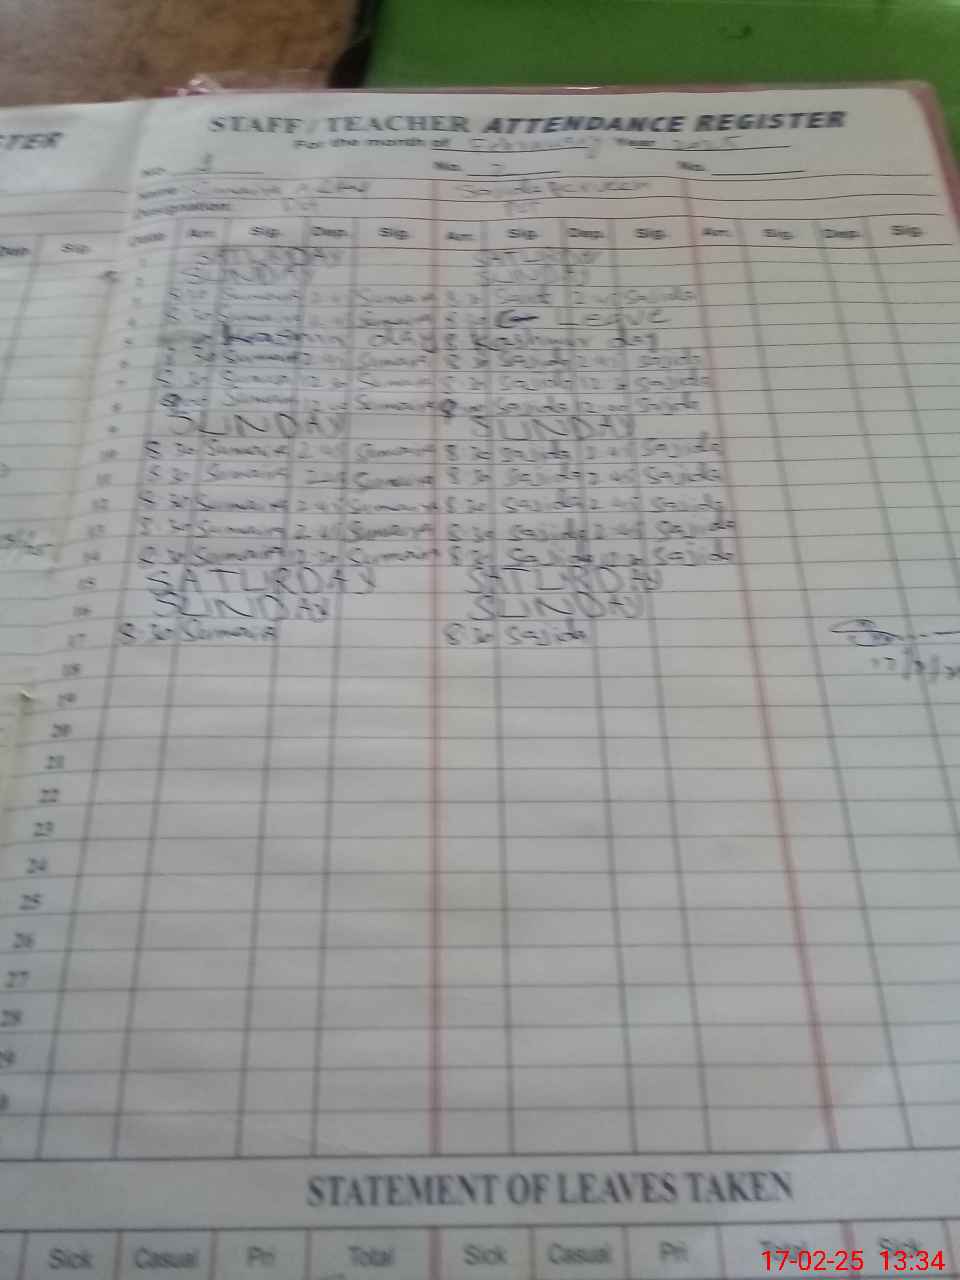 STER
STAFF / TEACHER ATTENDANCE REGISTER
For the month of February Year 2025
No. 1 No. 2 No.
Name Sumaira Sajida Perveen
Designation:
Dep. Sig. Date Arr. Sig. Dep. Sig. Arr. Sig. Dep. Sig. Arr. Sig. Dep. Sig.
1 SATURDAY SATURDAY
2 SUNDAY SUNDAY
3 8:30 Sumaira 2.45 Sumaira 8.30 Sajida 2.45 Sajida
4 8.30 Sumaira 2.45 Sumaira 8.30 Leave
5 Kashmir day 8 Kashmir day
6 8.30 Sumaira 2.45 Sumaira 8.30 Sajida 2.45 Sajida
7 8.30 Sumaira 12.30 Sumaira 8.30 Sajida 12.30 Sajida
8 Sumaira Sumaira Sajida Sajida
9 SUNDAY SUNDAY
10 8.30 Sumaira 2.45 Sumaira 8.30 Sajida 2.45 Sajida
11 8.30 Sumaira 2.45 Sumaira 8.30 Sajida 2.45 Sajida
12 8.30 Sumaira 2.45 Sumaira 8.30 Sajida 2.45 Sajida
13 8.30 Sumaira 2.45 Sumaira 8.30 Sajida 2.45 Sajida
14 8.30 Sumaira 12.30 Sumaira 8.30 Sajida 12.30 Sajida
15 SATURDAY SATURDAY
16 SUNDAY SUNDAY
17 8.30 Sumaira 8.30 Sajida
18
19
20
21
22
23
24
25
26
27
28
29
STATEMENT OF LEAVES TAKEN
Sick Casual Pri Total Sick Casual Pri Total Sick
17-02-25 13:34